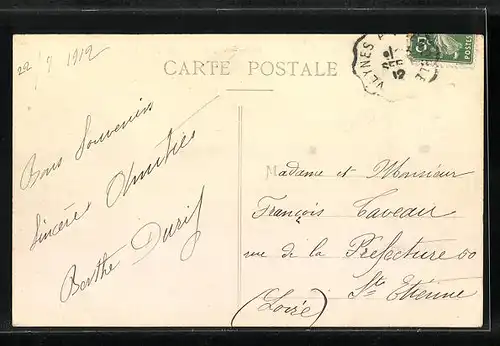 22/7 1912
CARTE POSTALE
VEYNES
5
POSTES
12
Bons Souvenirs
Sincères Amitiés
Berthe
Madame et Monsieur
François Caveau
rue de la Préfecture 60
St Etienne
(Loire)